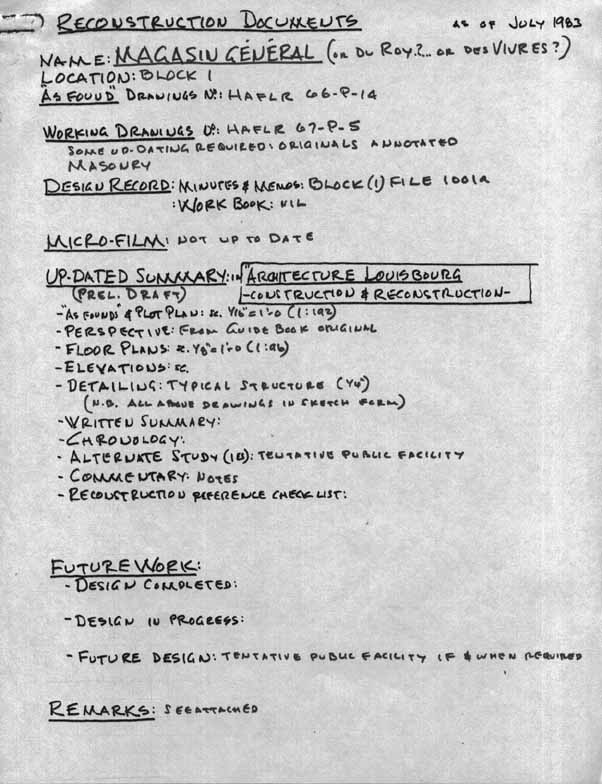 RECONSTRUCTION DOCUMENTS AS OF JULY 1983
NAME: MAGASIN GÉNÉRAL (OR DU ROY?... OR DES VIVRES?)
LOCATION: BLOCK 1
"AS FOUND" DRAWINGS No: HAFLR 66-P-14
WORKING DRAWINGS No: HAFLR 67-P-5
SOME UP-DATING REQUIRED: ORIGINALS ANNOTATED
MASONRY
DESIGN RECORD: MINUTES & MEMOS: BLOCK (1) FILE 1001a
: WORK BOOK: NIL
MICRO-FILM: NOT UP TO DATE
UP-DATED SUMMARY: IN "ARCHITECTURE LOUISBOURG
(PREL. DRAFT) -CONSTRUCTION & RECONSTRUCTION-
-"AS FOUNDS" & PLOT PLAN: SC. 1/16"=1'-0 (1:192)
-PERSPECTIVE: FROM GUIDE BOOK ORIGINAL
-FLOOR PLANS: SC. 1/8"=1'-0 (1:96)
-ELEVATIONS: SC.
-DETAILING: TYPICAL STRUCTURE (1/4")
(N.B. ALL ABOVE DRAWINGS IN SKETCH FORM)
-WRITTEN SUMMARY:
-CHRONOLOGY:
- ALTERNATE STUDY (1B): TENTATIVE PUBLIC FACILITY
- COMMENTARY: NOTES
- RECONSTRUCTION REFERENCE CHECK LIST:
FUTURE WORK:
- DESIGN COMPLETED:
- DESIGN IN PROGRESS:
- FUTURE DESIGN: TENTATIVE PUBLIC FACILITY IF & WHEN REQUIRED
REMARKS: SEE ATTACHED